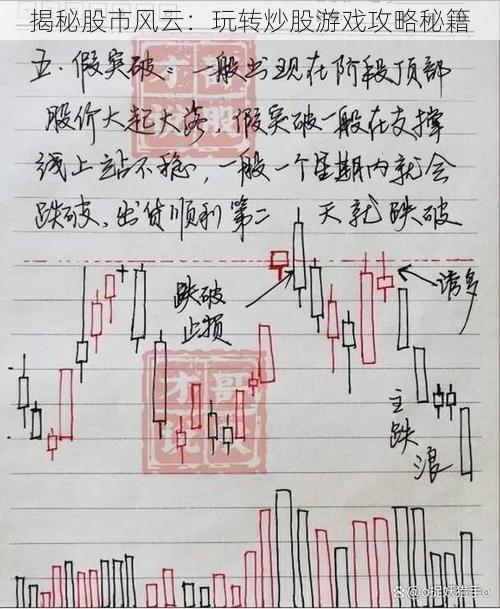 揭秘股市风云：玩转炒股游戏攻略秘籍
五.假突破:一般出现在阶段顶部
股价大起大落,假突破一般在支撑
线上站不稳,一般一个星期内就会
跌破、出货顺利第二天就跌破
跌破
止损
诱多
主
跌
浪
才哥
才哥
@o捉妖猎手o